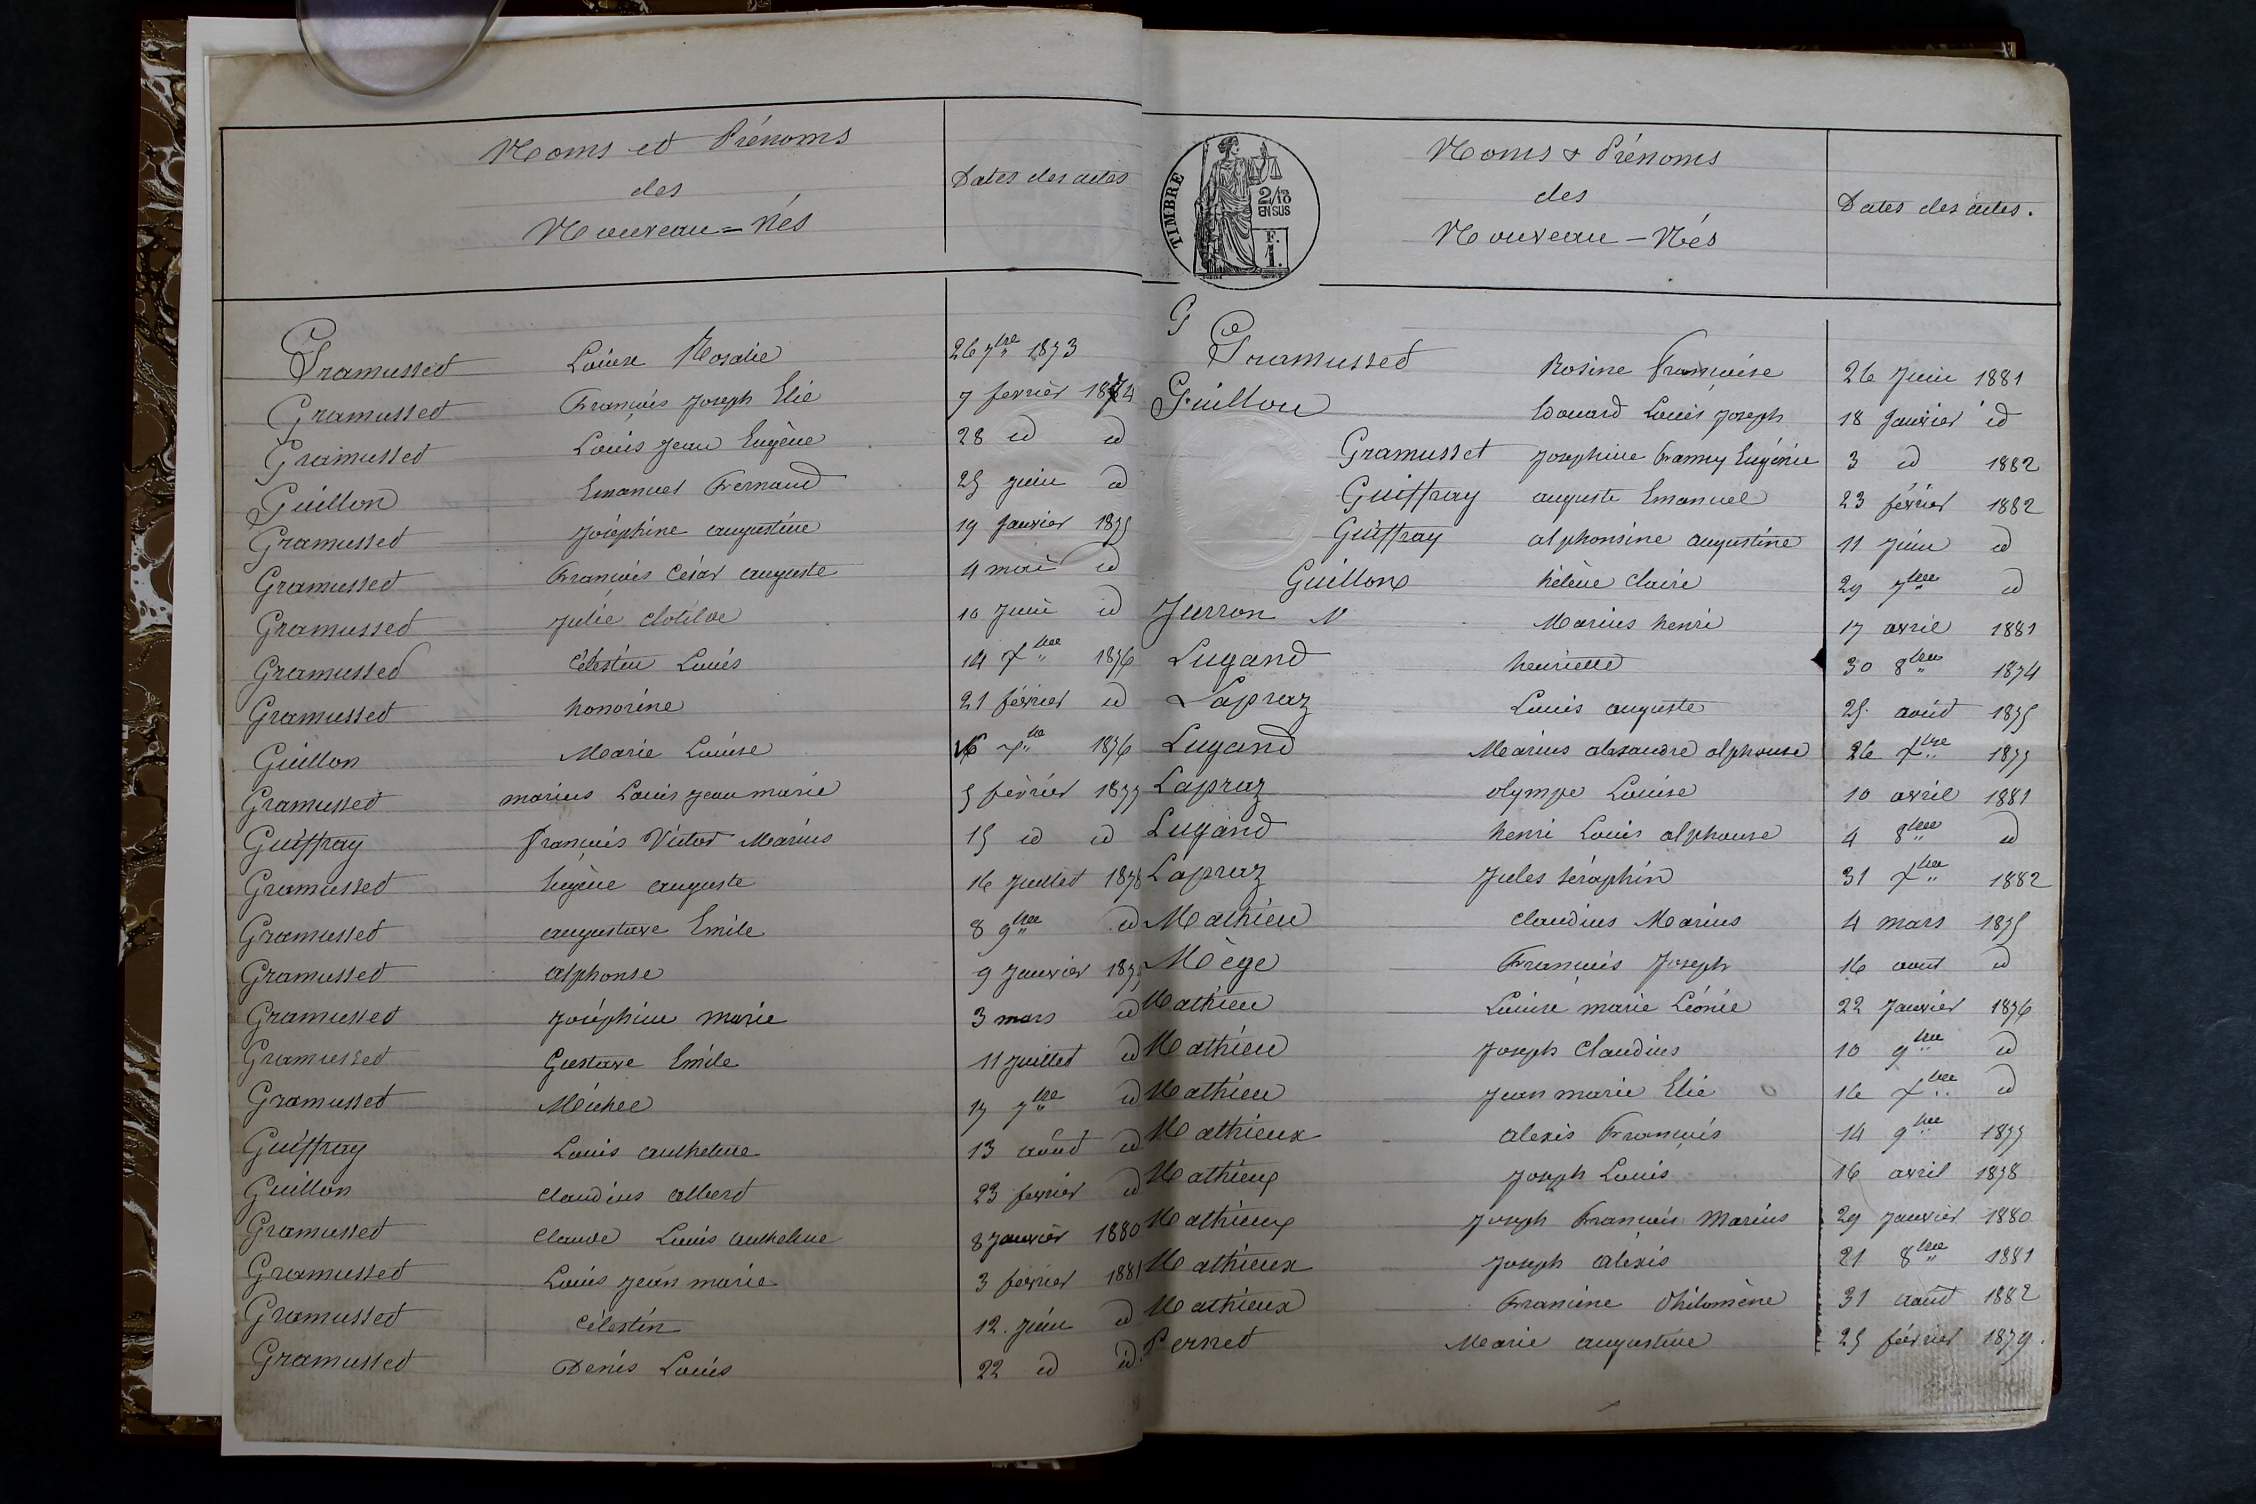 Noms et Prénoms
des
Nouveau=Nés
Dates des actes
Gramusset Louise Rosalie 26 7bre 1873
Gramusset François Joseph Elie 7 fevrier 1874
Gramusset Louis Jean Eugène 28 id id
Guillon Emanuel Fernand 25 juin id
Gramusset Joséphine augustine 19 Janvier 1875
Gramusset François César auguste 4 mai id
Gramusset Julie Clotilde 10 Juin id
Gramusset Célestin Louis 14 Xbre 1876
Gramusset honorine 21 février id
Guillon Marie Louise 16 Xbre 1876
Gramusset marius Louis Jean marie 5 février 1877
Guiffray François Victor Marius 15 id id
Gramusset Eugène auguste 16 Juillet 1878
Gramusset augustave Emile 8 9bre id
Gramusset alphonse 9 Janvier 1879
Gramusset Joséphine marie 3 mars id
Gramusset Gustave Emile 11 Juillet id
Gramusset Michel 17 7bre id
Guiffray Louis anthelme 13 août id
Guillon Claudius albert 23 fevrier id
Gramusset Claude Louis anthelme 8 Janvier 1880
Gramusset Louis Jean marie 3 fevrier 1881
Gramusset Célestin 12 Juin id
Gramusset Denis Louis 22 id id
TIMBRE
2/10
EN SUS
F.
1.
Noms & Prénoms
des
Nouveau-Nés
Dates des actes.
G
Gramusset Rosine Françoise 26 Juin 1881
Guillon Edouard Louis Joseph 18 Janvier id
Gramusset Josephine Fanny Eugénie 3 id 1882
Guiffray auguste Emanuel 23 février 1882
Guiffray alphonsine augustine 11 Juin id
Guillon hélène Claire 29 7bre id
Jurron N Marius henri 17 avril 1881
Lugand henriette 30 8bre 1874
Lapraz Louis auguste 25 août 1875
Lugand Marius alexandre alphonse 26 Xbre 1877
Lapraz olympe Louise 10 avril 1881
Lugand henri Louis alphonse 4 8bre id
Lapraz Jules Séraphin 31 Xbre 1882
Mathieu Claudius Marius 4 mars 1875
Mège François Joseph 16 aout id
Mathieu Louise marie Léonie 22 Janvier 1876
Mathieu Joseph Claudius 10 9bre id
Mathieu Jean marie Elie 16 Xbre id
Mathieux alexis François 14 9bre 1877
Mathieux Joseph Louis 16 avril 1878
Mathieux Joseph François Marius 29 Janvier 1880
Mathieux Joseph alexis 21 8bre 1881
Mathieux Francine Philomène 31 août 1882
Pernet Marie augustine 25 février 1879.